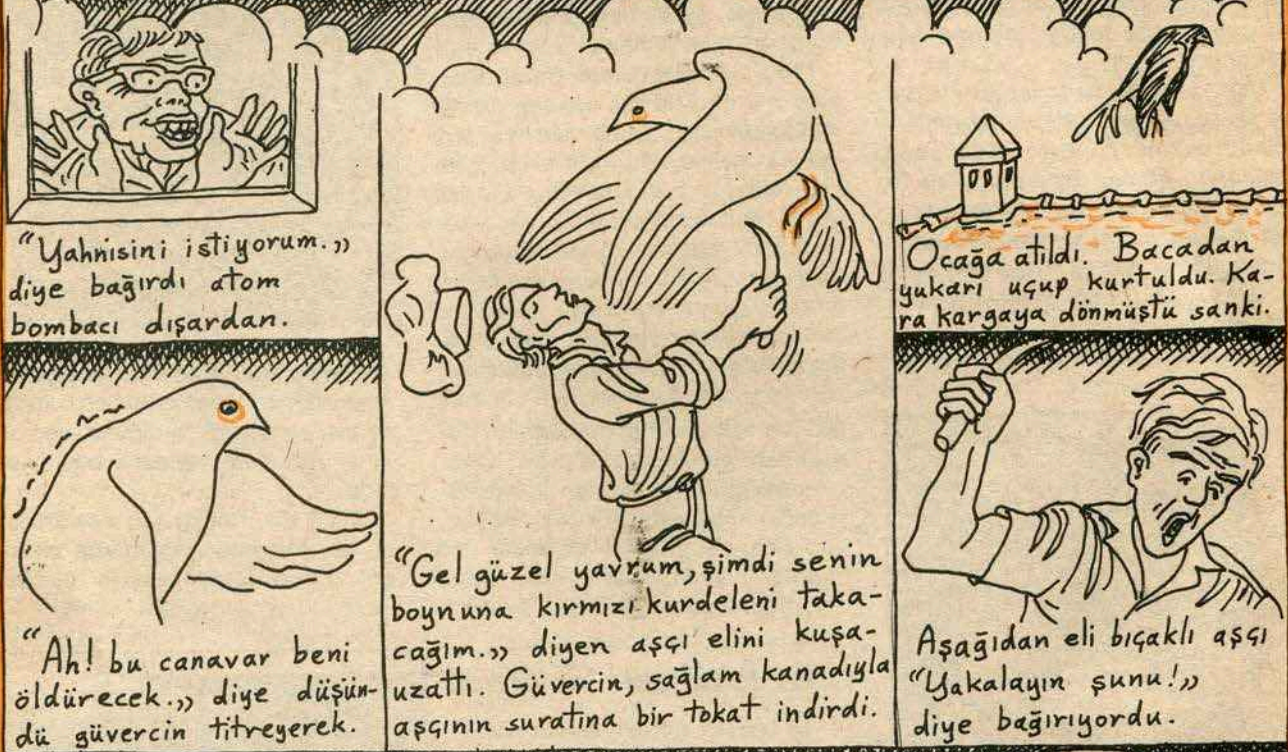 “Yahnisini istiyorum.„
diye bağırdı atom
bombacı dışardan.
“Ah! bu canavar beni
öldürecek.„ diye düşün-
dü güvercin titreyerek.
“Gel güzel yavrum, şimdi senin
boynuna kırmızı kurdeleni taka-
cağım.„ diyen aşçı elini kuşa-
uzattı. Güvercin, sağlam kanadıyla
aşçının suratına bir tokat indirdi.
Ocağa atıldı. Bacadan
yukarı uçup kurtuldu. Ka-
ra kargaya dönmüştü sanki.
Aşağıdan eli bıçaklı aşçı
“Yakalayın şunu!„
diye bağırıyordu.